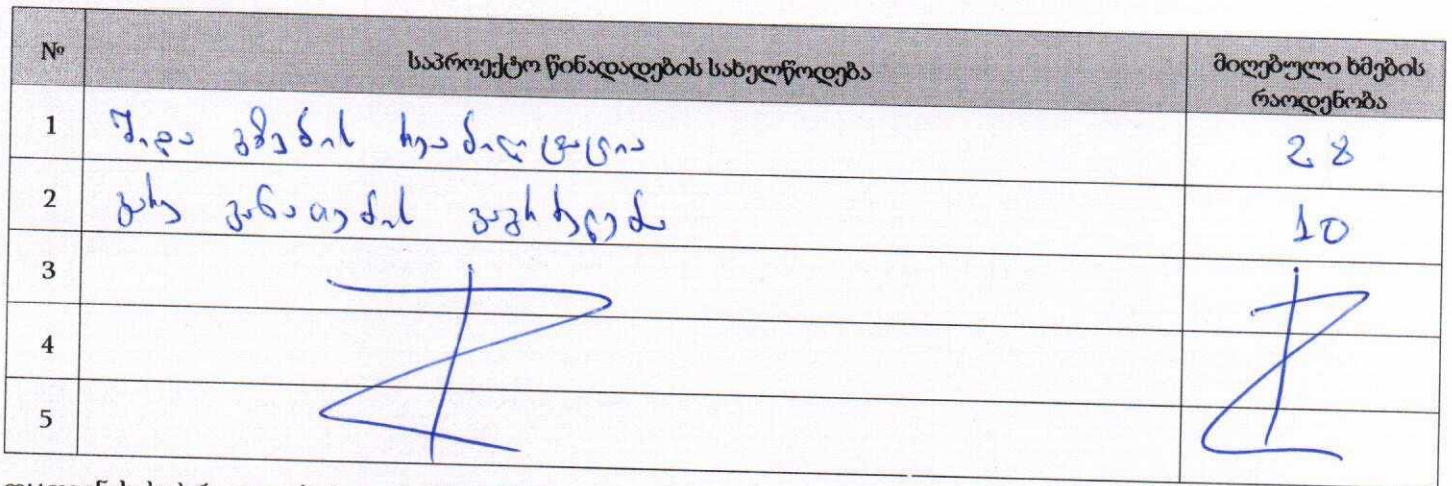 № საპროექტო წინადადების სახელწოდება მიღებული ხმების
რაოდენობა
1 შიდა გზების რეაბილიტაცია 28
2 გარე განათების გაგრძელება 10
3
4
5